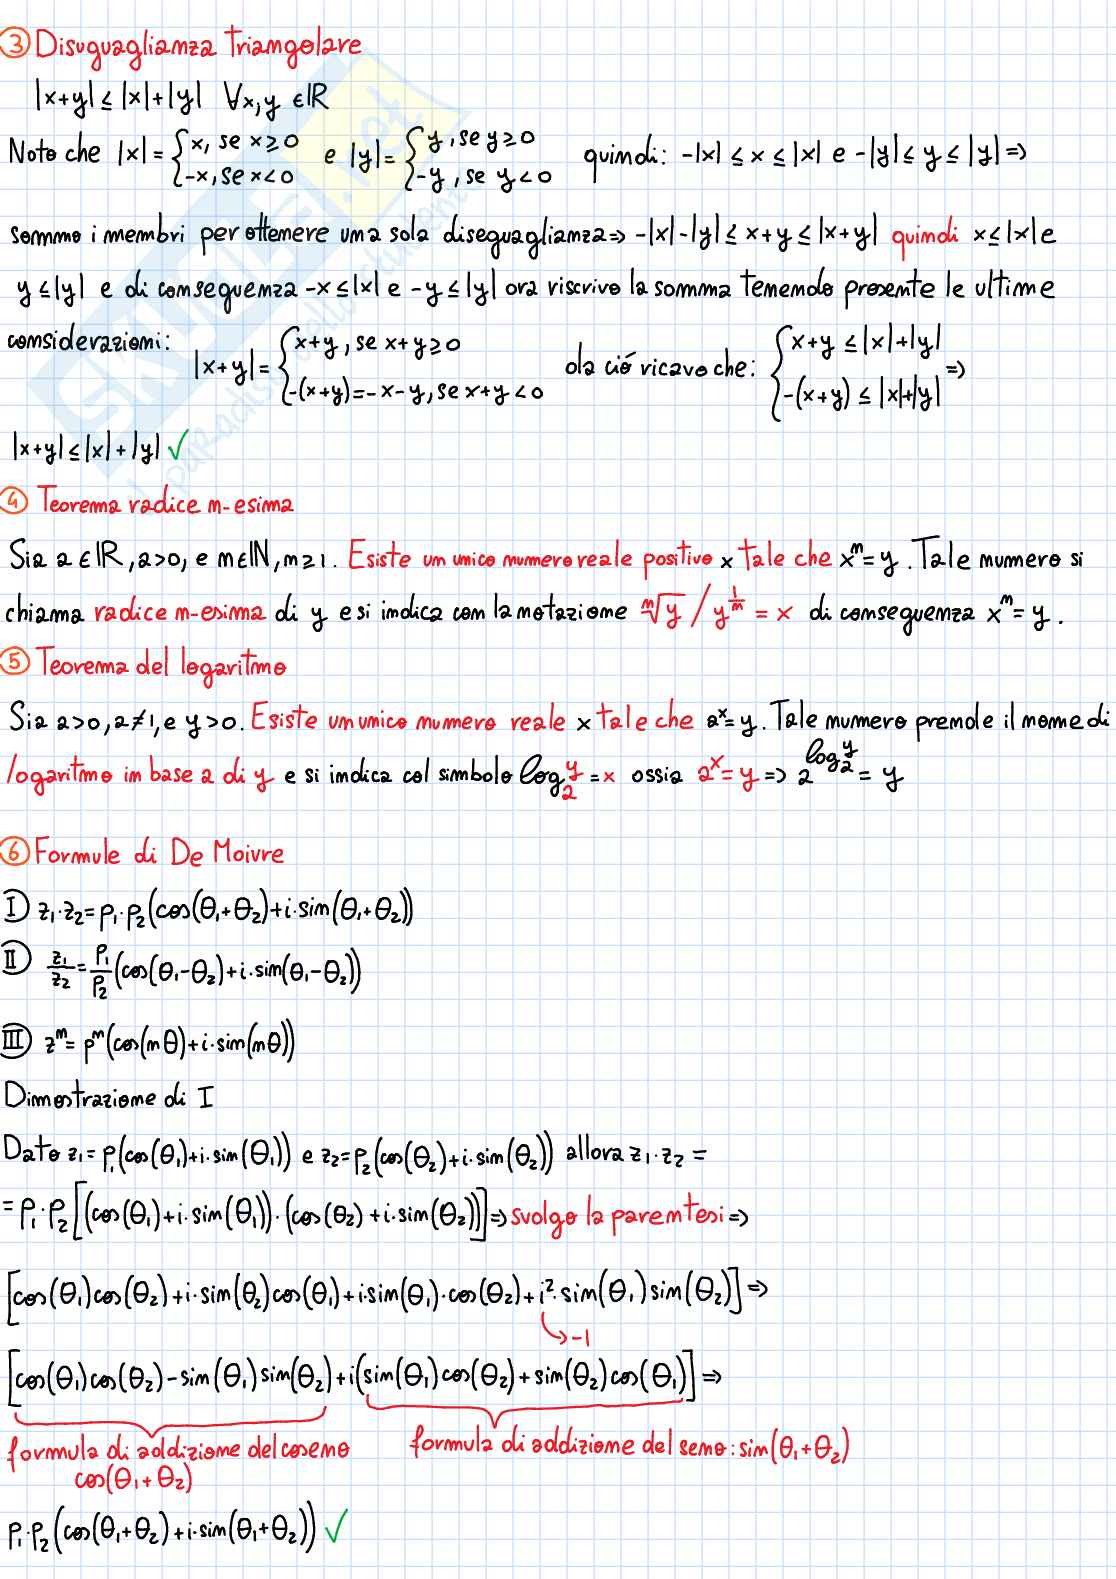 ③ Disuguaglianza triangolare
|x+y| ≤ |x|+|y| ∀x,y ∈ℝ
Noto che |x| = { x, se x≥0 ; -x, se x<0 e |y| = { y, se y≥0 ; -y, se y<0 quindi: -|x| ≤ x ≤ |x| e -|y| ≤ y ≤ |y| ⇒
sommo i membri per ottenere una sola diseguaglianza ⇒ -|x|-|y| ≤ x+y ≤ |x+y| quindi x≤|x| e
y ≤|y| e di conseguenza -x ≤|x| e -y ≤|y| ora riscrivo la somma tenendo presente le ultime
considerazioni: |x+y| = { x+y, se x+y≥0 ; -(x+y)=-x-y, se x+y<0 da ció ricavo che: { x+y ≤ |x|+|y| ; -(x+y) ≤ |x|+|y| ⇒
|x+y| ≤ |x|+|y| ✓
④ Teorema radice n-esima
Sia a ∈ℝ, a>0, e n∈ℕ, n≥1. Esiste un unico numero reale positivo x tale che xⁿ=y. Tale numero si
chiama radice n-esima di y e si indica con la notazione ⁿ√y / y^(1/n) = x di conseguenza xⁿ=y.
⑤ Teorema del logaritmo
Sia a>0, a≠1, e y>0. Esiste un unico numero reale x tale che aˣ=y. Tale numero prende il nome di
logaritmo in base a di y e si indica col simbolo logₐ y = x ossia aˣ=y ⇒ a^(logₐ y) = y
⑥ Formule di De Moivre
Ⅰ z₁·z₂=ρ₁·ρ₂(cos(θ₁+θ₂)+i·sin(θ₁+θ₂))
Ⅱ z₁/z₂ = ρ₁/ρ₂ (cos(θ₁-θ₂)+i·sin(θ₁-θ₂))
Ⅲ zⁿ= ρⁿ(cos(nθ)+i·sin(nθ))
Dimostrazione di I
Dato z₁=ρ₁(cos(θ₁)+i·sin(θ₁)) e z₂=ρ₂(cos(θ₂)+i·sin(θ₂)) allora z₁·z₂ =
=ρ₁·ρ₂[(cos(θ₁)+i·sin(θ₁))·(cos(θ₂)+i·sin(θ₂))] ⇒ svolgo la parentesi ⇒
[cos(θ₁)cos(θ₂)+i·sin(θ₂)cos(θ₁)+i·sin(θ₁)·cos(θ₂)+i²·sin(θ₁)sin(θ₂)] ⇒
↳ -1
[cos(θ₁)cos(θ₂)-sin(θ₁)sin(θ₂)+i(sin(θ₁)cos(θ₂)+sin(θ₂)cos(θ₁))] ⇒
formula di addizione del coseno formula di addizione del seno: sin(θ₁+θ₂)
cos(θ₁+θ₂)
ρ₁·ρ₂(cos(θ₁+θ₂)+i·sin(θ₁+θ₂)) ✓
SKUOLA.net
il paradiso dello studente